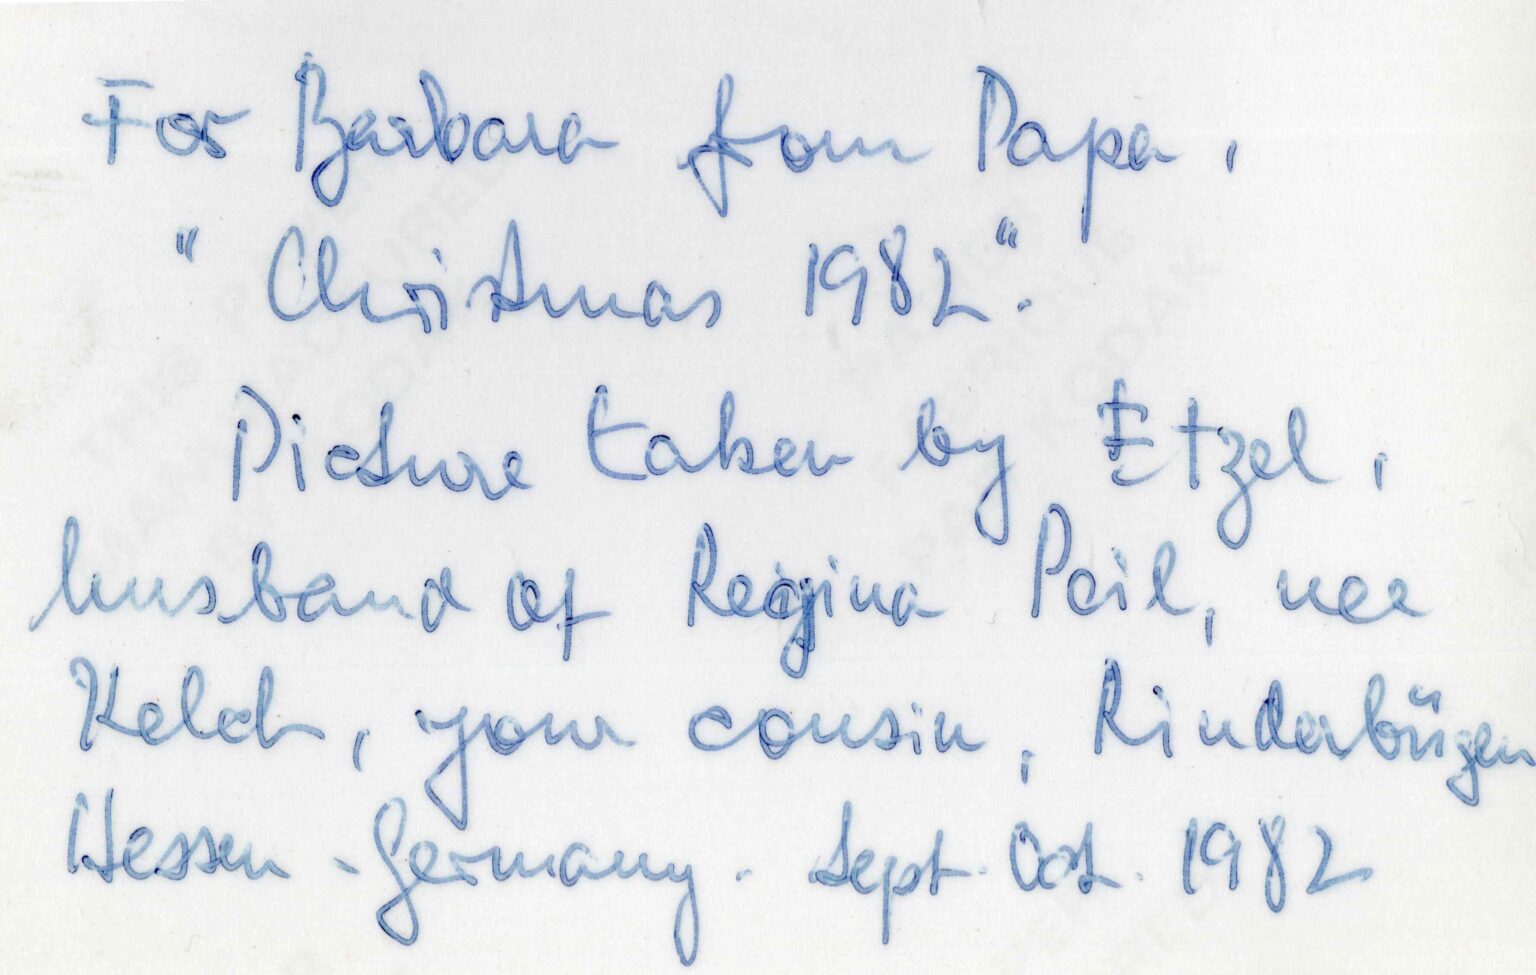 For Barbara from Papa,
"Christmas 1982".
Picture taken by Etzel,
husband of Regina Peil, nee
Kelch, your cousin, Rinderbügen
Hessen - Germany. Sept. Oct. 1982